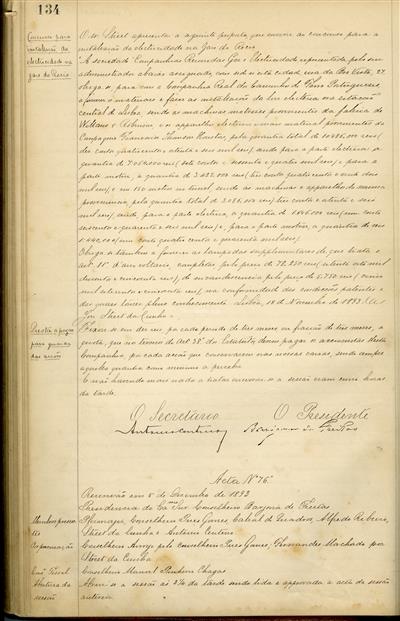 134
Concurso para
installação da
electricidade na
gare do Rocio
O sr Street apresenta a seguinte proposta que concorre ao concurso para a
installação da electricidade na Gare do Rocio
"A sociedade Companhias Reunidas Gaz e Electricidade representada pelo seu
administrador abaixo assignado, com séde n'esta cidade, rua da Boa Vista, 27
obriga-se, para com a Companhia Real dos Caminhos de Ferro Portuguezes,
a fornecer os materiaes e fazer as installações da luz electrica na estação
central de Lisboa, sendo as machinas motrizes provenientes da fabrica de
Willans & Robinson, e os apparelhos electricos e mais material provenientes da
Compagnie Française Thomson Houston, pela quantia total de 10:486.000 reis,
dez contos quatrocentos e oitenta e seis mil reis, sendo para a parte electrica a
quantia de 7:064.000 reis, sete contos e sessenta e quatro mil reis, e para a
parte motriz, a quantia de 3:422.000 reis, tres contos quatrocentos e vinte e dois
mil reis, e em
sendo as machinas e apparelhos da mesma
proveniencia, pela quantia total de 3:086.000 reis, tres contos e oitenta e seis
mil reis, sendo, para a parte electrica, a quantia de 1:646.000 reis, um conto
seiscentos e quarenta e seis mil reis, e, para a parte motriz, a quantia de reis
1:440.000, um conto quatrocentos e quarenta mil reis,
Obriga-se tambem a fornecer as lampadas supplementares de que trata o
art. 25º d'arco voltaico, completas, pelo preço de
de incandescencia pelo preço de
na conformidade das condições patentes e
das quaes tenho pleno conhecimento. Lisboa, 18 de Novembro de 1893. (a)
Jon Street da Cunha".
Prestão a pagar
para guarda
das acções
Fixou-se em dez reis por cada periodo de tres mezes ou fracção de tres mezes, a
quota, que nos termos do Art 38º dos Estatutos, devem pagar os accionistas desta
Companhia por cada acção que conservarem nos nossos caixas, sendo sempre
aquella quantia como minimo a perceber
E não havendo mais nada a tratar encerrou-se a sessão eram cinco horas
da tarde.
O Secretario O Presidente
Acta Nº 76
Reunião em 5 de Dezembro de 1893
Presidencia do Exmo Snr Conselheiro Barjona de Freitas
Membros presen-
tes
Conselheiro Pires Gomes, Cabral de Quadros, Alfredo Ribeiro,
Street da Cunha e Antonio Centeno
Por procuração
Conselheiro Arroyo pelo conselheiro Pires Gomes; Fernandes Machado por
Street da Cunha
Com. Fiscal
Conselheiro Manoel Pinheiro Chagas
Abertura da
sessão
Abriu-se a sessão ás
da tarde sendo lida e approvada a acta da sessão
anterior